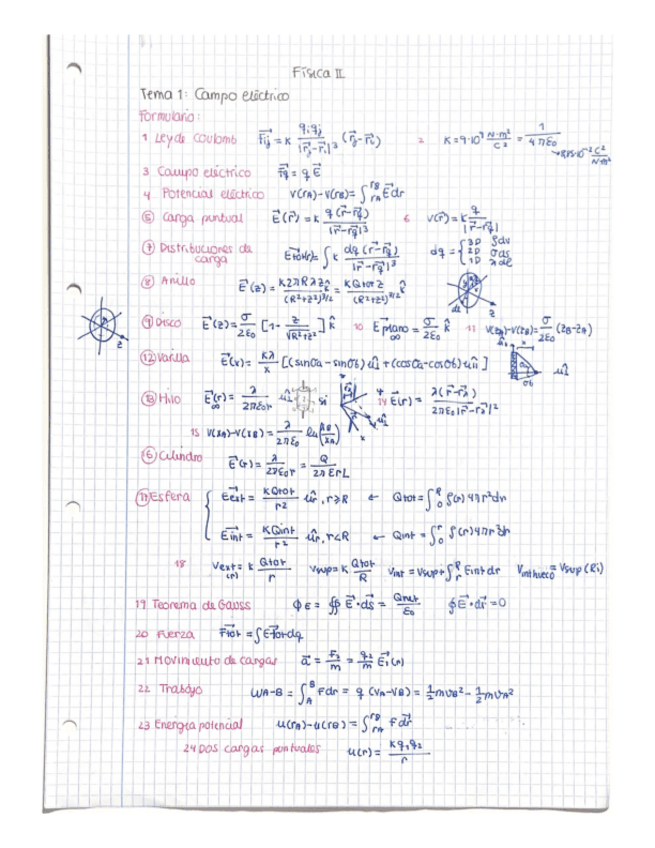 Física II
Tema 1: Campo eléctrico
Formulario:
1 Ley de Coulomb $\vec{F_{ij}} = K \frac{q_i q_j}{|\vec{r_j}-\vec{r_i}|^3} (\vec{r_j}-\vec{r_i})$ 2 $K = 9·10^9 \frac{N·m^2}{C^2} = \frac{1}{4πε_0}$
3 Campo eléctrico $\vec{F_q} = q\vec{E}$
4 Potencial eléctrico $V(r_A)-V(r_B) = \int_{r_A}^{r_B} \vec{E}dr$
5 Carga puntual $\vec{E}(\vec{r}) = K \frac{q(\vec{r}-\vec{r_q})}{|\vec{r}-\vec{r_q}|^3}$ 6 $V(\vec{r}) = K \frac{q}{|\vec{r}-\vec{r_q}|}$
7 Distribuciones de carga $\vec{E}_{tot}(r) = \int K \frac{dq(\vec{r}-\vec{r_q})}{|\vec{r}-\vec{r_q}|^3}$ dq = { 3D ρdv 2D σds 1D λde
8 Anillo $\vec{E}(z) = \frac{K2πRλz}{(R^2+z^2)^{3/2}}\hat{k} = \frac{KQ_{tot}z}{(R^2+z^2)^{3/2}}\hat{k}$
z
9 Disco $\vec{E}(z) = \frac{σ}{2ε_0} [1-\frac{z}{\sqrt{R^2+z^2}}]\hat{k}$ 10 $\vec{E}_{plano ∞} = \frac{σ}{2ε_0}\hat{k}$ 11 $V(z_A)-V(z_B) = \frac{σ}{2ε_0}(z_B-z_A)$
z
12 Varilla $\vec{E}(x) = \frac{Kλ}{x} [(sinθ_a-sinθ_b)\hat{u}_⊥+(cosθ_a-cosθ_b)\hat{u}_{II}]$
13 Hilo ∞ $\vec{E}(r) = \frac{λ}{2πε_0r}\hat{u}_⊥$ si 14 $\vec{E}(r) = \frac{λ(\vec{r}-\vec{r_λ})}{2πε_0|\vec{r}-\vec{r_λ}|^2}$
15 $V(x_A)-V(x_B) = \frac{λ}{2πε_0} ln(\frac{x_B}{x_A})$
16 Cilindro $\vec{E}(r) = \frac{λ}{2πε_0r} = \frac{Q}{2πεrL}$
17 Esfera { $\vec{E}_{ext} = \frac{KQ_{tot}}{r^2}\hat{u}_r$, r≥R ← $Q_{tot} = \int_0^R ρ(r)4πr^2dr$
$\vec{E}_{int} = \frac{KQ_{int}}{r^2}\hat{u}_r$, r<R ← $Q_{int} = \int_0^r ρ(r)4πr^2dr$
18 $V_{ext}(r) = K\frac{Q_{tot}}{r}$ $V_{sup} = K\frac{Q_{tot}}{R}$ $V_{int} = V_{sup}+\int_r^R E_{int}dr$ $V_{int hueco} = V_{sup}(R_i)$
19 Teorema de Gauss $Φ_E = \oiint \vec{E}·\vec{ds} = \frac{Q_{net}}{ε_0}$ $\oint \vec{E}·\vec{dr} = 0$
20 Fuerza $\vec{F}_{tot} = \int \vec{E}_{tot}dq$
21 Movimiento de cargas $\vec{a} = \frac{F_2}{m} = \frac{q_2}{m}\vec{E_1}(r)$
22 Trabajo $W_{A-B} = \int_A^B Fdr = q(V_A-V_B) = \frac{1}{2}mv_B^2-\frac{1}{2}mv_A^2$
23 Energía potencial $U(r_A)-U(r_B) = \int_{r_A}^{r_B} F\vec{dr}$
24 Dos cargas puntuales $U(r) = \frac{Kq_1q_2}{r}$